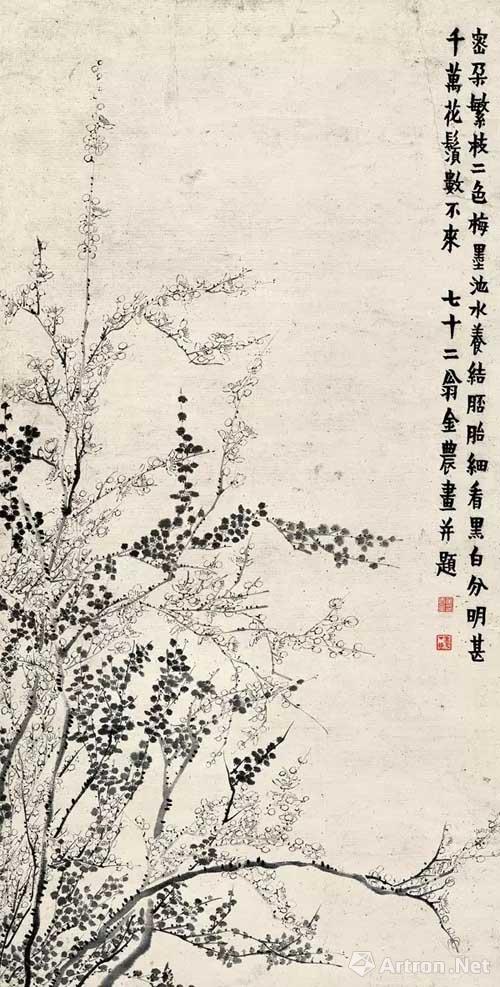 密朶繁枝二色梅墨池水養結胚胎細看黑白分明甚
千萬花鬚數不來 七十二翁金農畫并題
Artron.Net